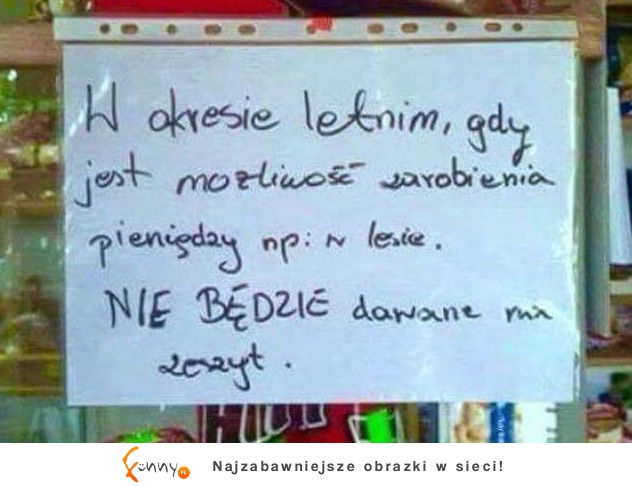 W okresie letnim, gdy
jest możliwość zarobienia
pieniędzy np: w lesie.
NIE BĘDZIE dawane na
zeszyt.
funny.pl
Najzabawniejsze obrazki w sieci!